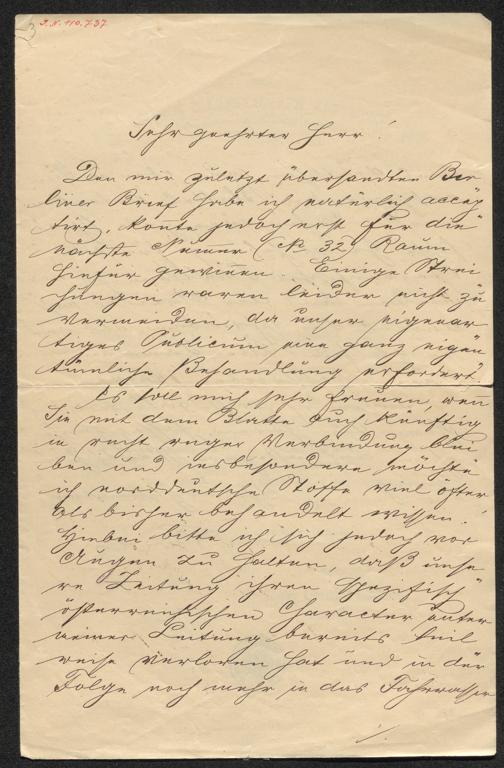 J. N. 110.737
Sehr geehrter Herr!
Den mir zuletzt übersandten Ber
liner Brief habe ich natürlich accep
tirt, konnte jedoch erst für die
nächste Numer (No 32) Raum
hiefür gewinen. Einige Strei
chungen waren leider nicht zu
vermeiden, da unser eigenar
tiges Publicum eine ganz eigen
tümliche Behandlung erfordert.
Es soll mich sehr freuen, wen
Sie mit dem Blatte auch künftig
in recht reger Verbindung blei
ben und insbesondere möchte
ich norddeutsche Stoffe viel öfter
als bisher behandelt wissen.
Hiebei bitte ich sich jedoch vor
Augen zu halten, daß unse
re Zeitung ihren spezifisch
österreichischen Character unter
meiner Leitung bereits teil
weise verloren hat und in der
Folge noch mehr in das Fahrwasser
./.